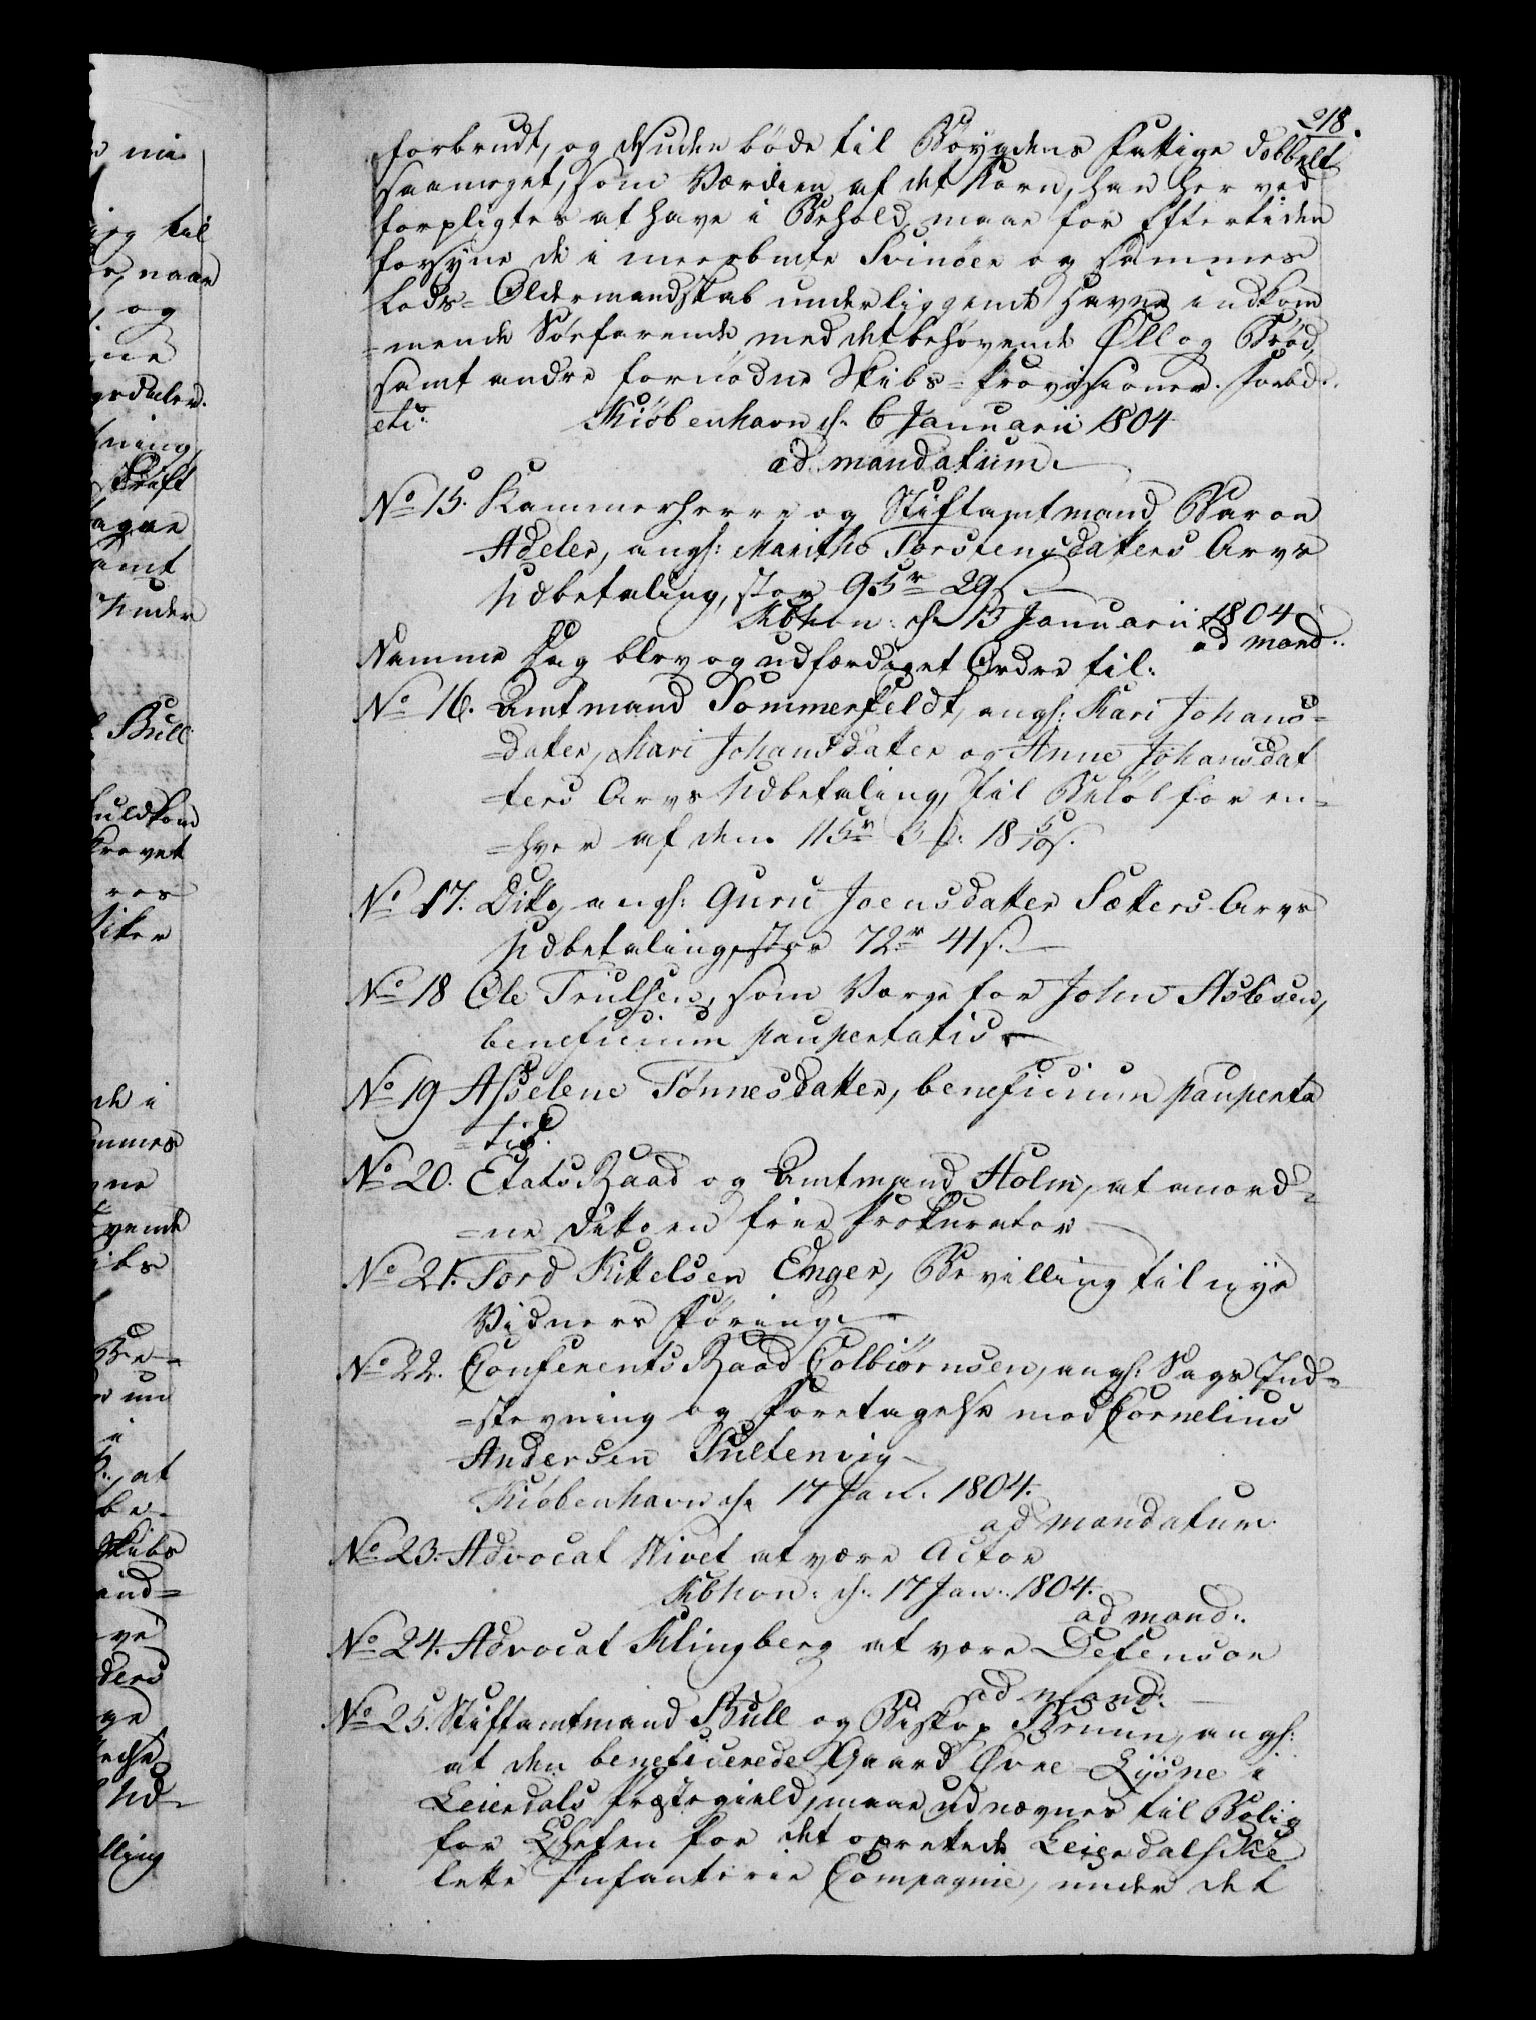 218.
forbrudt, og desuden bøde til Bøygdens Fattige dobbelt
saameget, som Værdien af det Korn, han her ved
forpligtes at have i Behold, maae for Eftertiden
forsyne de i meerbemte Svinøer og sammes
Lods-Oldermandskab underliggende Havne indkom
=mende Søefarende, med det behøvende Øll og Brød,
samt andre fornødne Skibs-Provisioner. Forbd.
etc. Kiøbenhavn d. 6 Januarii 1804
ad mandatum.
No 15. Kammerherre og Stiftamtmand Baron
Adeler, angl: Marithe Torstensdatters Arvs
Udbetaling, stor 95r 29s
Kbhvn: d. 13 Januarii 1804
ad mand:.
Samme Dag blev og udfærdiget Ordre til:
No 16. Amtmand Sommerfeldt, angl: Kari Johans=
=datter, Mari Johansdatter og Anne Johansdat
=ters Arvs Udbetaling, til Beløb for en=
=hver af dem 115r 3 18
No 17. Ditto, angl: Guru Joensdatter Sætters Arvs
Udbetaling, stor 72r 41s.
No 18 Ole Trulsen, som Værge for John Aslesen,
beneficium paupertatis
No 19 Asselene Tønnesdatter, beneficium pauperta
=tis.
No 20. EtatsRaad og Amtmand Holm, at anord=
=ne Ditto en frie Prokurator
No 21. Tord Kittelsen Enger, Bevilling til nye
Vidners Føring.
No 22. ConferentsRaad Colbiørnsen, angl: Sags Ind=
=stevning og Foretagelse mod Cornelius
Andersen Sultenvig
Kiøbenhavn d. 17 Jan. 1804.
ad mandatum
No 23. Advocat Wivet at være Actor
Kbhvn: d. 17 Jan: 1804.
ad mand:.
No 24. Advocat Klingberg at være Defensor
ad mand:
No 25. Stiftamtmand Bull og Biskop Bruun, angl:
at den beneficerede Gaard Øvre-Lysne i
Leierdals Præstegield, maae udnævnes til Bolig
for Chefen for det oprettede Leierdalske
lette Infanterie Compagnie, under det